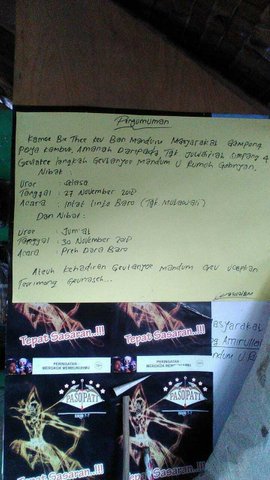 Pengumuman
Kamoe Bri Thee keu Ban Mandum Masyarakat Gampong
Paya Kambuk, Amanah Daripada, Tgk Juwairiah Simpang 4
Geulatee langkah Geulanyoe Mandum U Rumoh Gobnyan,
Nibak
Uroe : Selasa
Tanggal : 27 November 2018
Acara : Intat Linto Baro (Tgk Mulawan)
Dan Nibak :
Uroe : Jum'at
Tanggal : 30 November 2018
Acara : Preh Dara Baro
Ateuh Kehadiran Geulanyoe Mandum Geu Ucapkan
Teurimong Geunaseh...
Tepat Sasaran..!!!
Tepat Sasaran..!!!
PERINGATAN:
MEROKOK MEMBUNUHMU
PERINGATAN:
MEROKOK MEMBUNUHMU
PASOPATI
PASOPATI
Tepat Sasaran..!!!
Masyarakat
Amirullah
Mandum U R